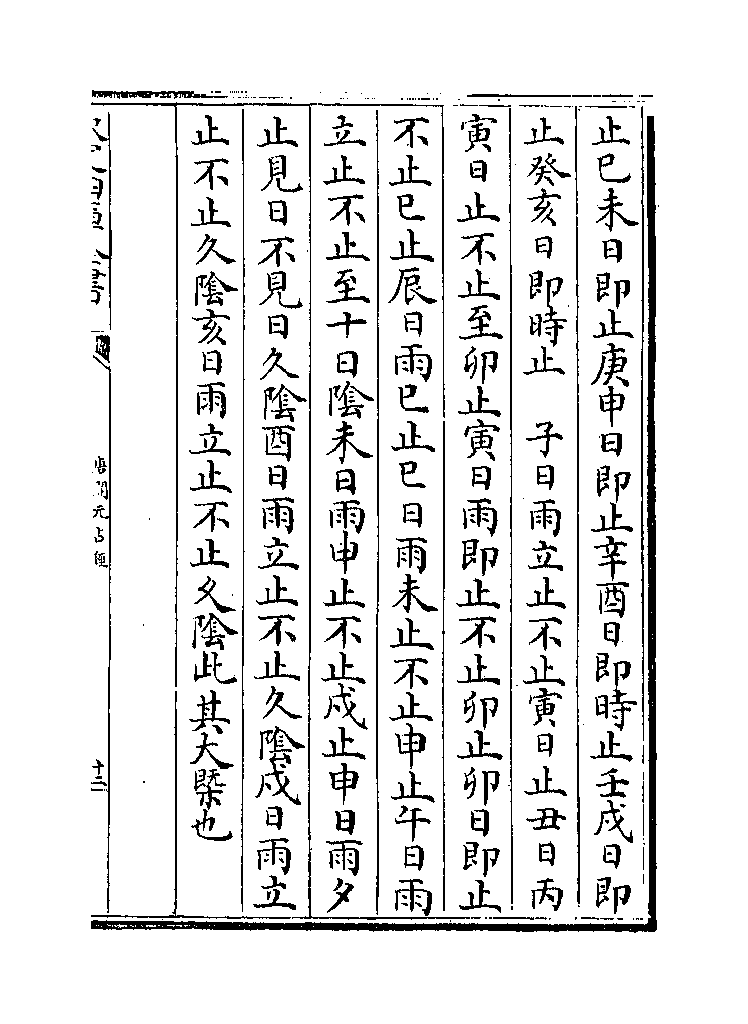 止已未日即止庚申日即止辛酉日即時止壬戌日即
止癸亥日即時止　子日雨立止不止寅日止丑日丙
寅日止不止至卯止寅日雨即止不止卯止卯日即止
不止巳止辰日雨巳止巳日雨未止不止申止午日雨
立止不止至十日陰未日雨申止不止戍止申日雨夕
止見日不見日久陰酉日雨立止不止久陰戍日雨立
止不止久陰亥日雨立止不止久陰此其大槩也
唐開元占經
十三